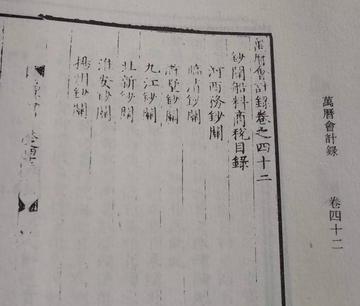 萬曆會計錄 卷四十二
萬曆會計錄卷之四十二
鈔關船料商稅目錄
河西務鈔關
臨清鈔關
滸墅鈔關
九江鈔關
北新鈔關
淮安鈔關
揚州鈔關